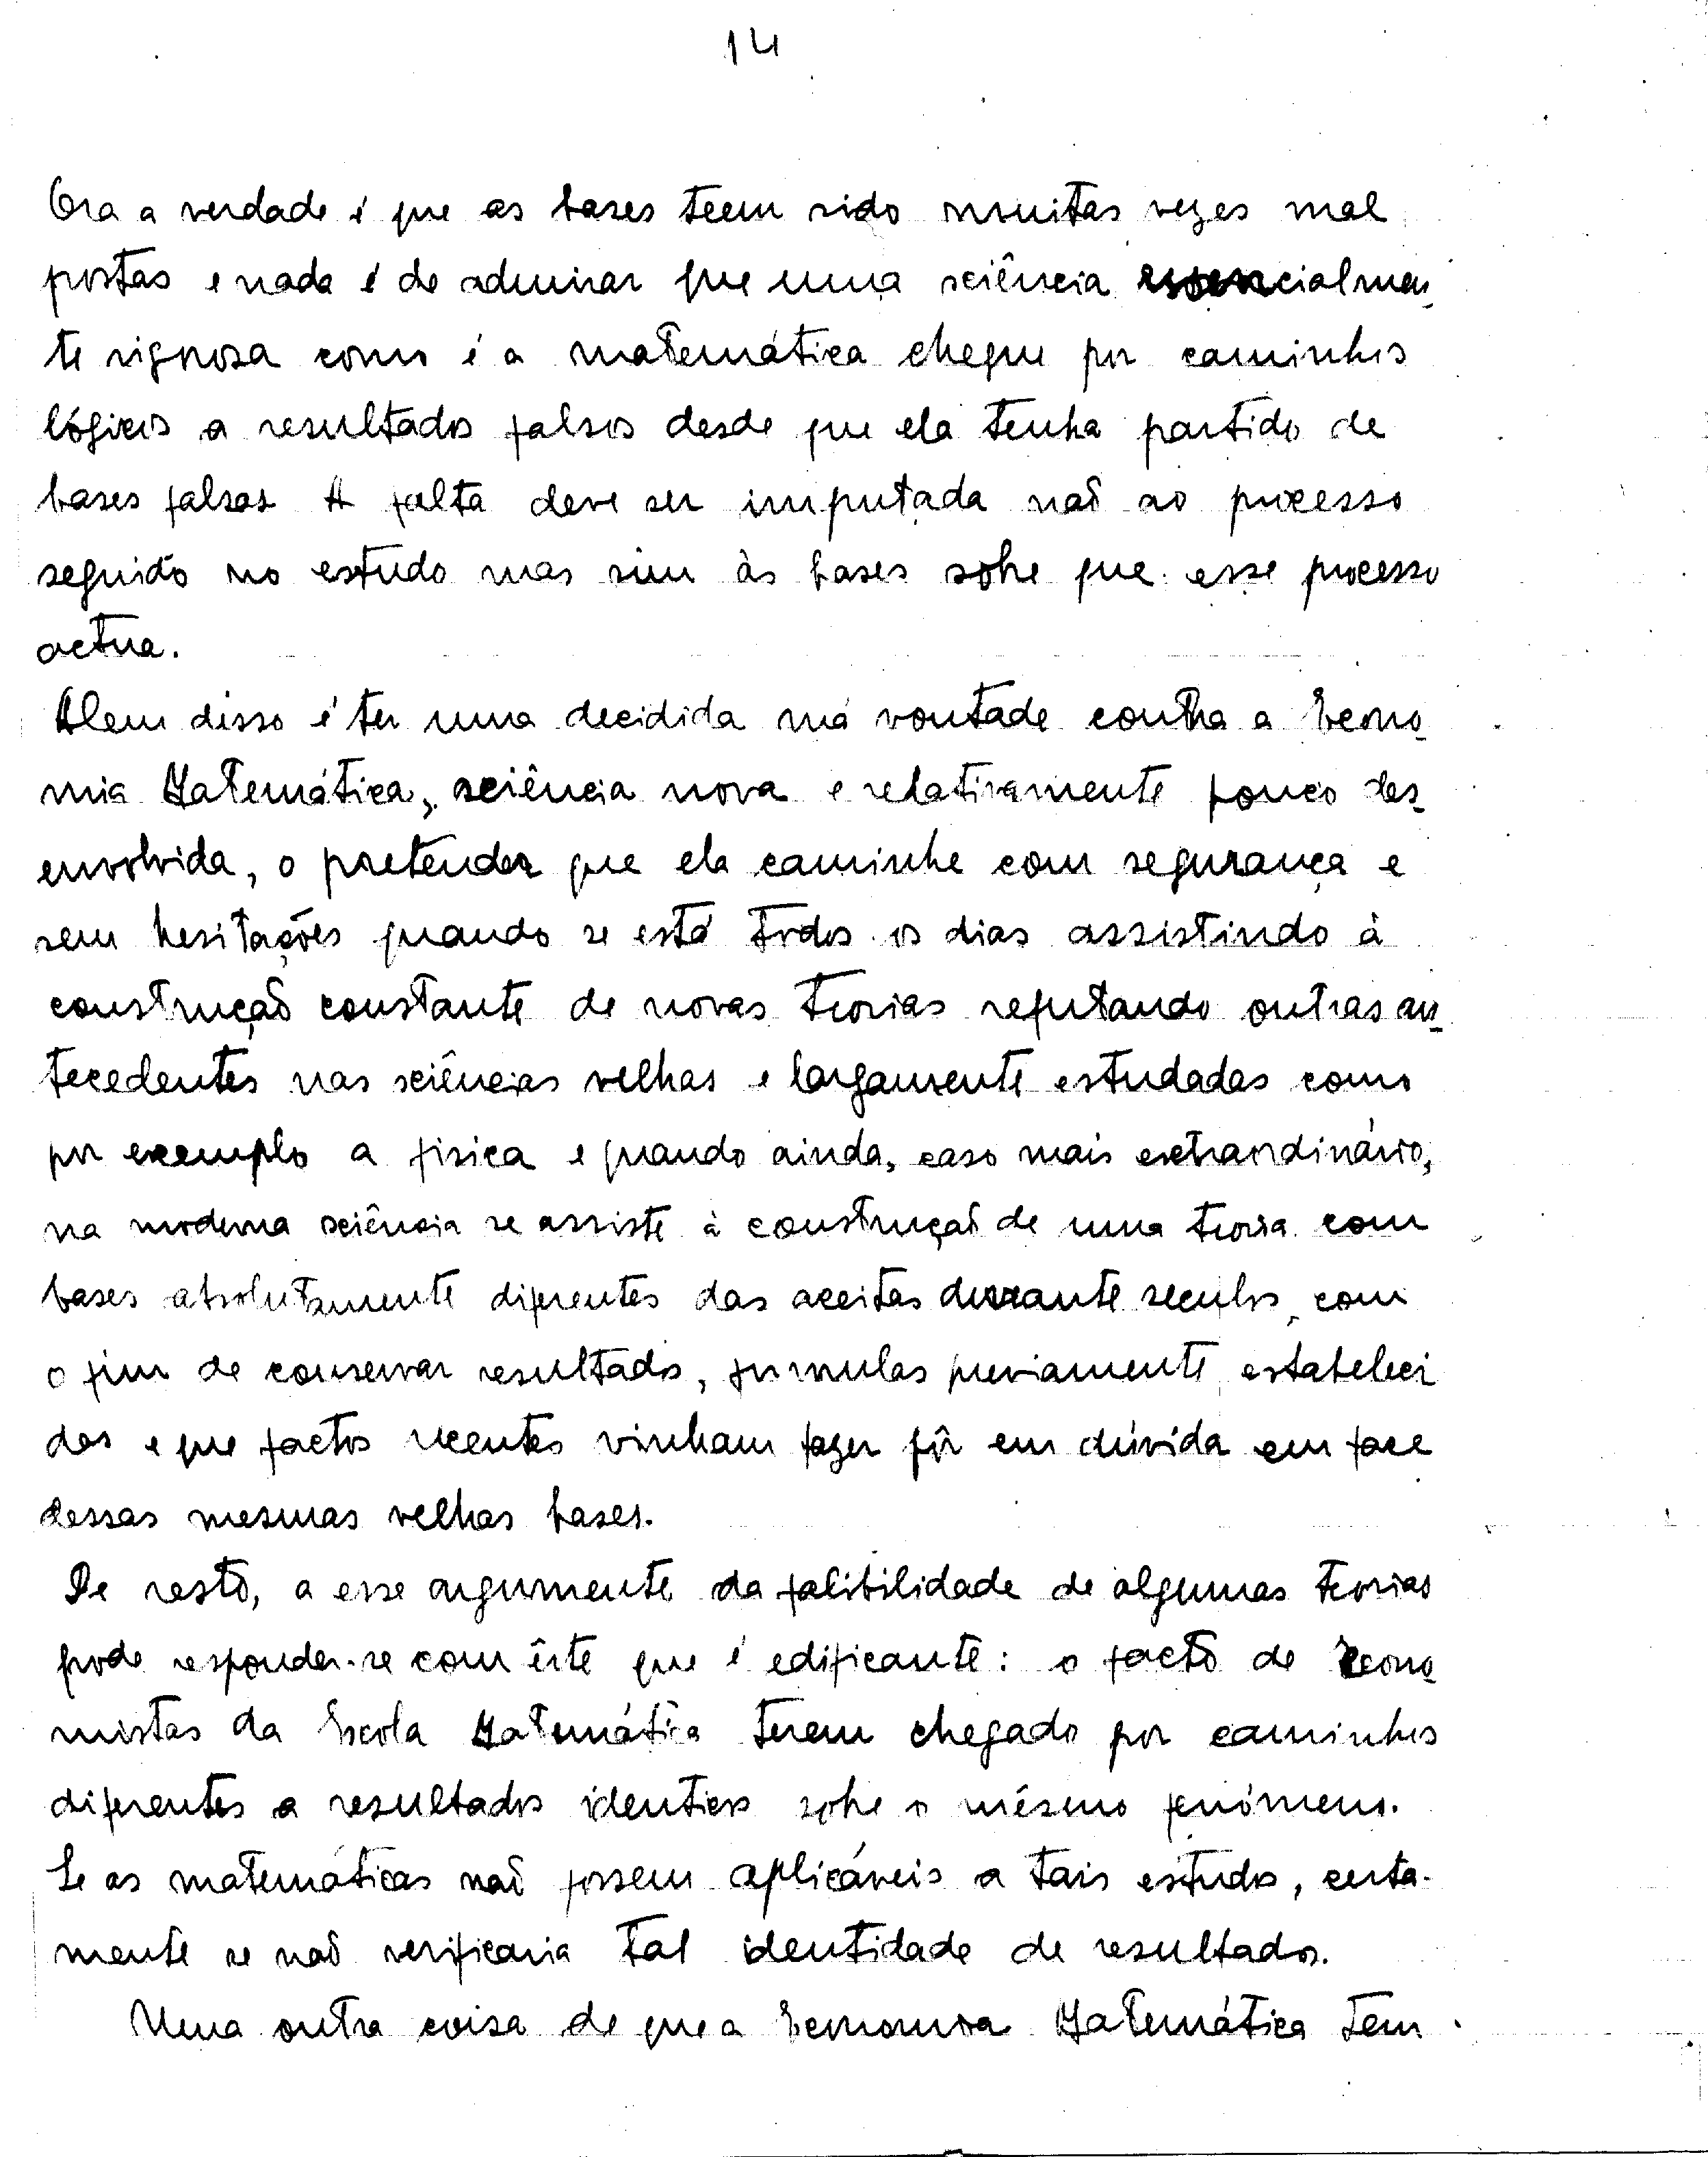 14
Ora a verdade é que as bases teem sido muitas vezes mal
postas e nada é de admirar que uma sciência essencialmen_
te rigorosa como é a matemática chegue por caminhos
lógicos a resultados falsos desde que ela tenha partido de
bases falsas. A falta deve ser imputada não ao processo
seguido no estudo mas sim às bases sobre que esse processo
actua.
Alem disso é ter uma decidida má vontade contra a Econo_
mia Matemática, sciência nova e relativamente pouco des_
envolvida, o pretender que ela caminhe com segurança e
sem hesitações quando se está todos os dias assistindo à
construção constante de novas teorias refutando outras an_
tecedentes nas sciências velhas e largamente estudadas como
por exemplo a fisica e quando ainda, caso mais extraordinário,
na moderna sciência se assiste à construção de uma teoria com
bases absolutamente diferentes das aceitas durante seculos, com
o fim de conservar resultados, formulas previamente estabeleci
das e que factos recentes vinham fazer pôr em dúvida em face
dessas mesmas velhas bases.
De resto, a esse argumento da falibilidade de algumas teorias
pode responder-se com êste que é edificante: o facto de Econo_
mistas da Escola Matemática terem chegado por caminhos
diferentes a resultados identicos sobre o mêsmo fenómeno.
Se as matemáticas não fossem aplicáveis a tais estudos, certa-
mente se não verificaria tal identidade de resultados.
Uma outra coisa de que a Economia Matemática tem